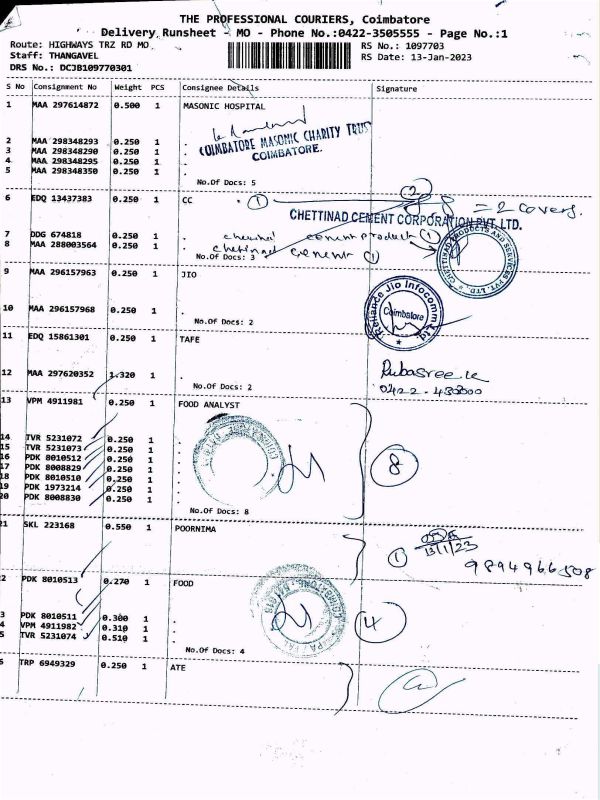 THE PROFESSIONAL COURIERS, Coimbatore
Delivery Runsheet - MO - Phone No.:0422-3505555 - Page No.:1
Route: HIGHWAYS TRZ RD MO RS No.: 1097703
Staff: THANGAVEL RS Date: 13-Jan-2023
DRS No.: DCJB109770301
S No Consignment No Weight PCS Consignee Details Signature
1 MAA 297614872 0.500 1 MASONIC HOSPITAL
COIMBATORE MASONIC CHARITY TRUST
COIMBATORE.
2 MAA 298348293 0.250 1 .
3 MAA 298348290 0.250 1 .
4 MAA 298348295 0.250 1 .
5 MAA 298348350 0.250 1 .
No.Of Docs: 5
6 EDQ 13437383 0.250 1 CC . 1 2 = 2 covers.
CHETTINAD CEMENT CORPORATION PVT. LTD.
7 DDG 674818 0.250 1 . chettinad cement product 1
8 MAA 288003564 0.250 1 . chettinad cement 1
No.Of Docs: 3
CHETTINAD PRODUCTS AND SERVICES PVT. LTD.
9 MAA 296157963 0.250 1 JIO
Reliance Jio Infocomm Ltd.
Coimbatore
10 MAA 296157968 0.250 1 .
No.Of Docs: 2
11 EDQ 15861301 0.250 1 TAFE
12 MAA 297620352 1.320 1 . Rubasree
No.Of Docs: 2
13 VPM 4911981 0.250 1 FOOD ANALYST
14 TVR 5231072 0.250 1 .
15 TVR 5231073 0.250 1 .
16 PDK 8010512 0.250 1 . 8
17 PDK 8008829 0.250 1 .
18 PDK 8010510 0.250 1 .
19 PDK 1973214 0.250 1 .
20 PDK 8008830 0.250 1 .
No.Of Docs: 8
21 SKL 223168 0.550 1 POORNIMA
1 13/1/23
9894966508
2 PDK 8010513 0.270 1 FOOD
3 PDK 8010511 0.300 1 . 4
4 VPM 4911982 0.310 1 .
5 TVR 5231074 0.510 1 .
No.Of Docs: 4
6 TRP 6949329 0.250 1 ATE